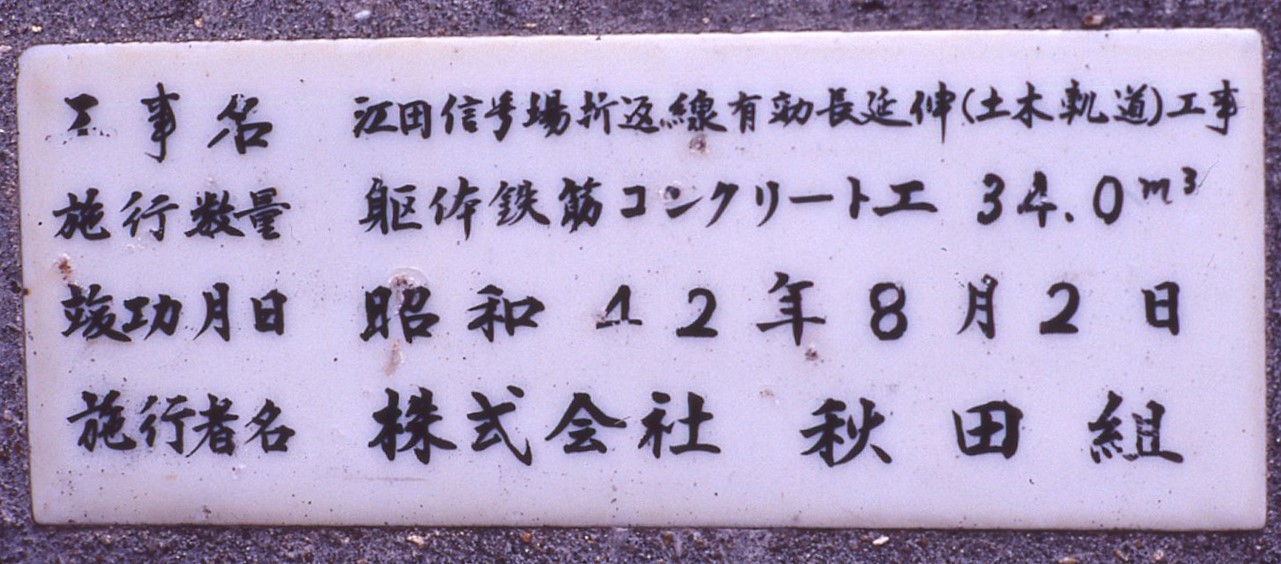 工事名 江田信号場折返線有効長延伸(土木軌道)工事
施行数量 躯体鉄筋コンクリート工 34.0m³
竣功月日 昭和42年8月2日
施行者名 株式会社 秋田組